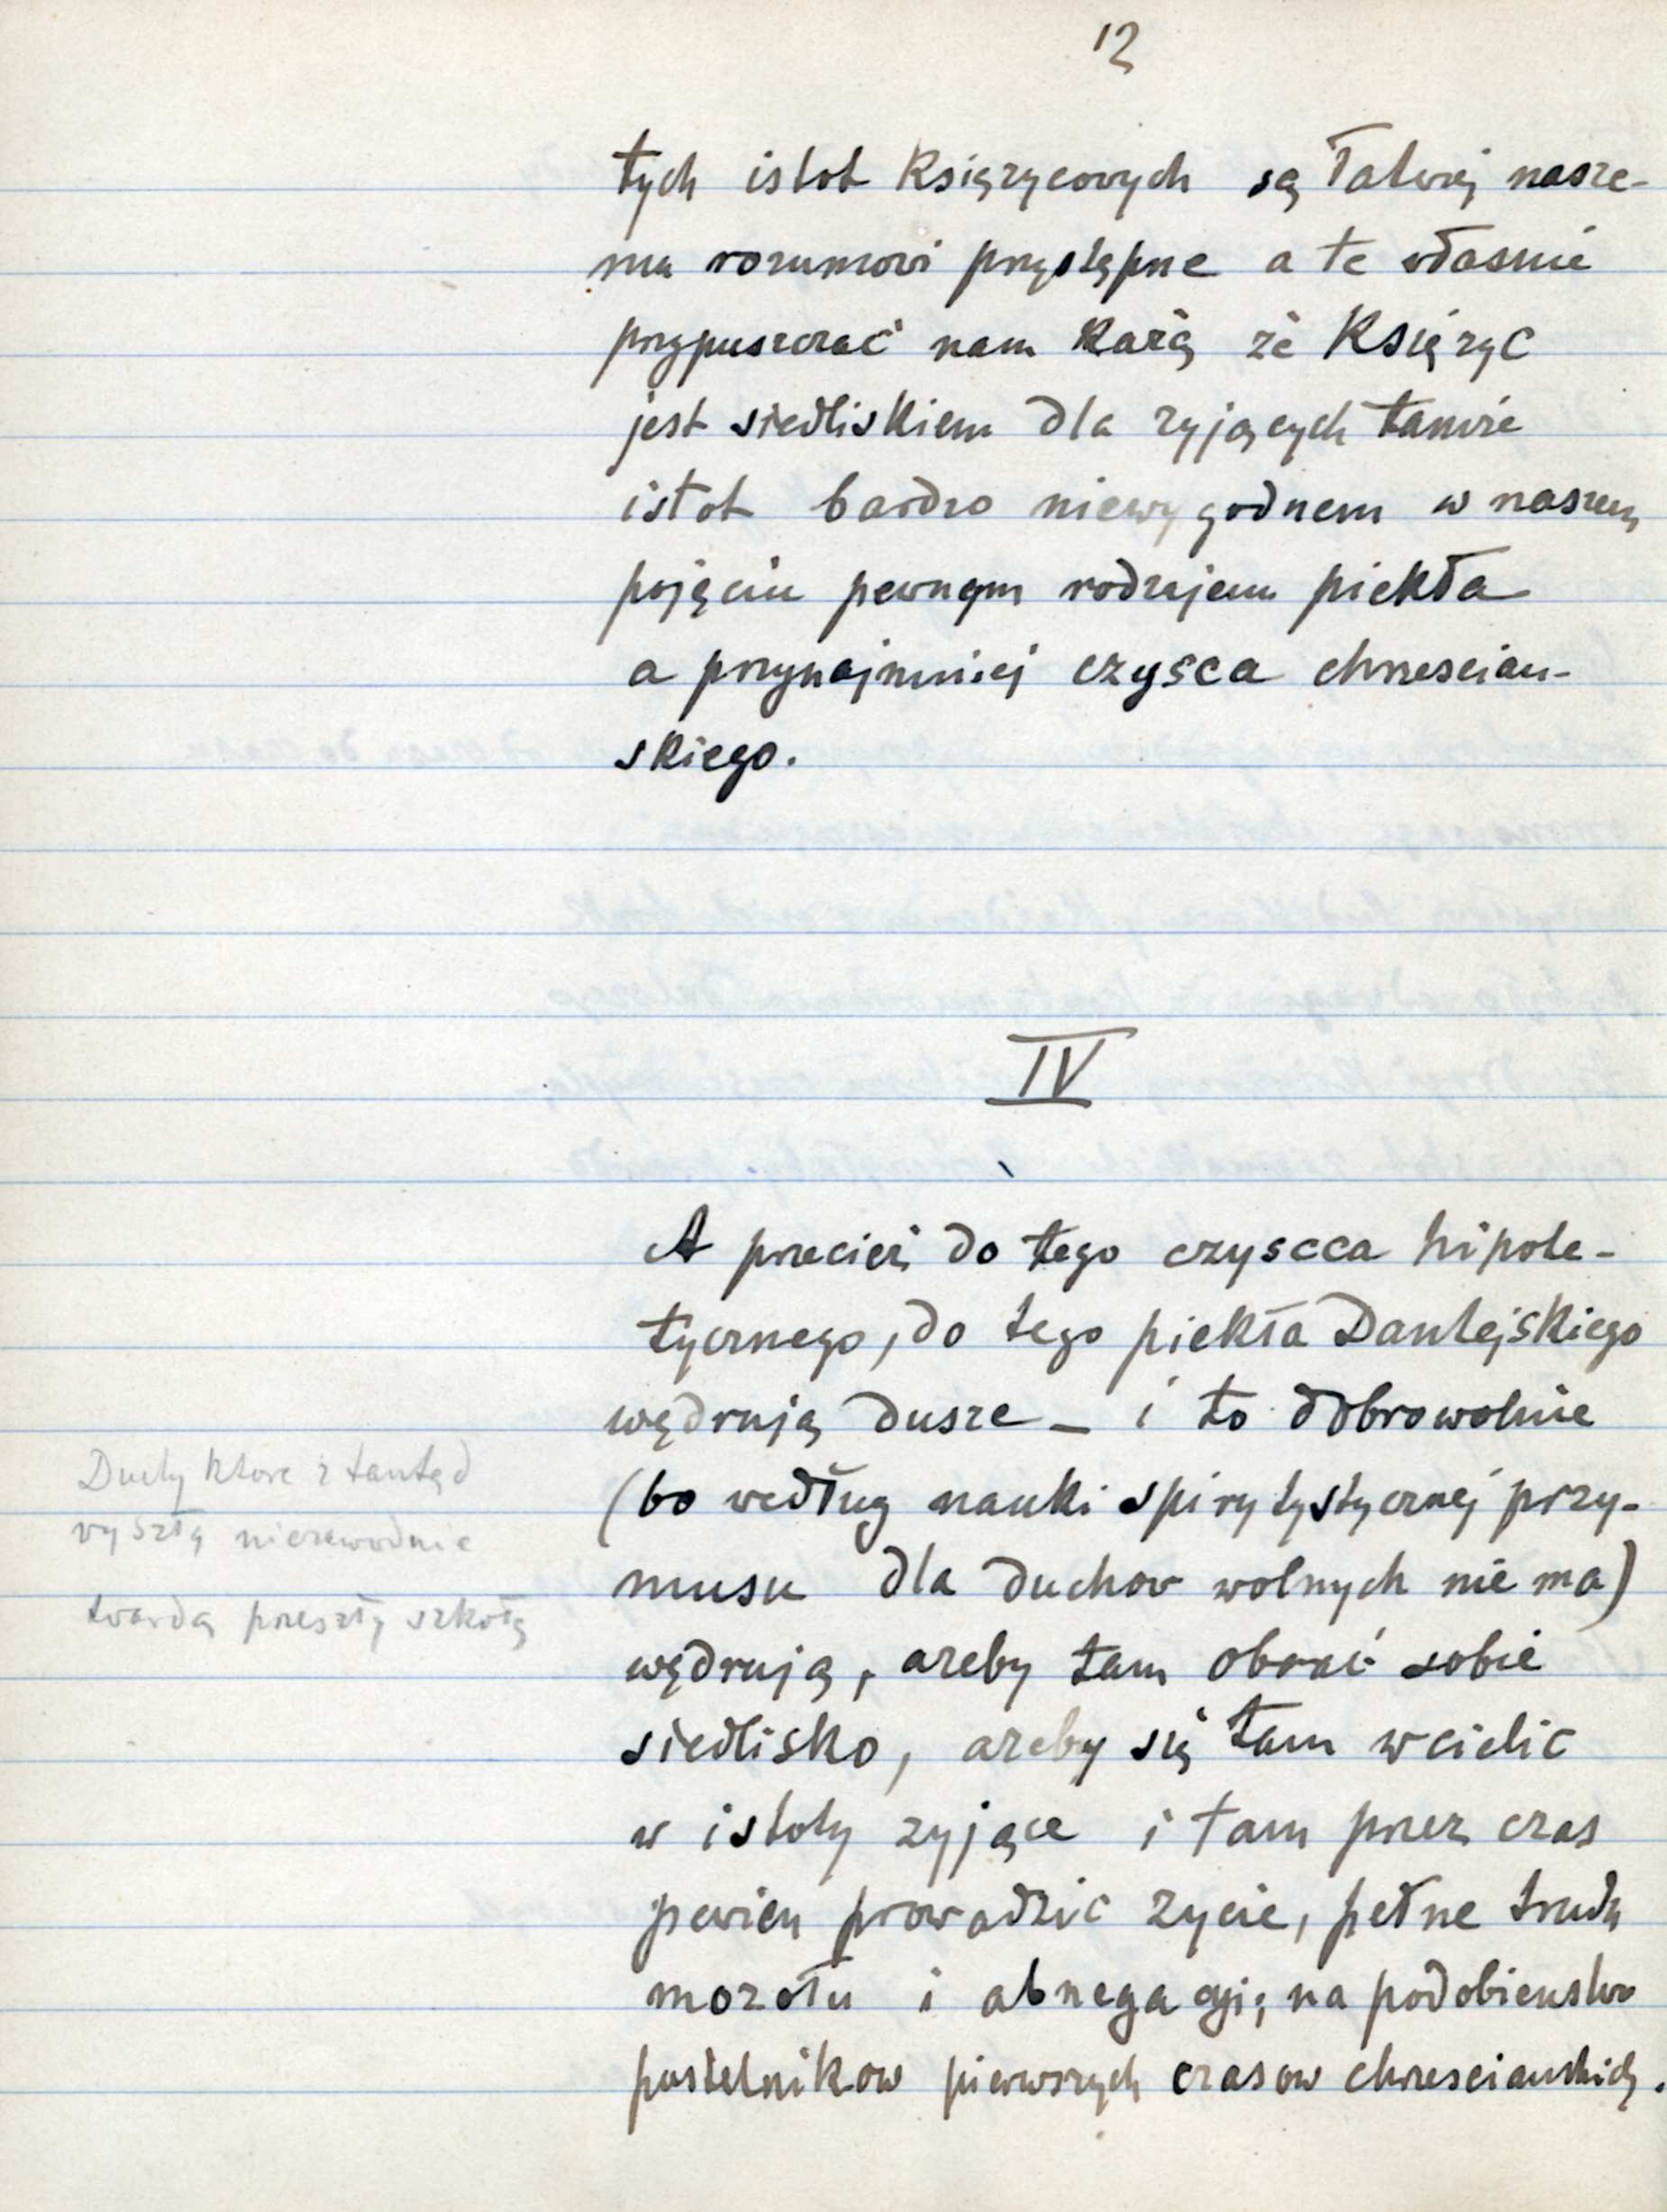 12
tych istot Księzycowych są łatwiej nasze-
mu rozumowi przystępne a te własnie
przypuszczać nam każą że Księzyc
jest siedliskiem dla zyjących tamże
istot bardzo niewygodnem w naszem
pojęciu pewnym rodzajem piekła
a przynajmniej czysca chrzescian-
skiego.
IV
A przecież do tego czyscca hipote-
tycznego, do tego piekła Dantejskiego
wędrują dusze – i to dobrowolnie
(bo według nauki spirytystycznej przy-
musu dla duchow wolnych nie ma)
wędrują, azeby tam obrać sobie
siedlisko, azeby się tam wcielic
w istoty zyjące i tam przez czas
pewien prowadzic zycie, pełne trudu
mozołu i abnegacyi; na podobienstwo
pustelnikow pierwszych czasow chrzescianskich.
Duchy ktore z tamtąd
wyszły niezawodnie
twardą przeszły szkołę